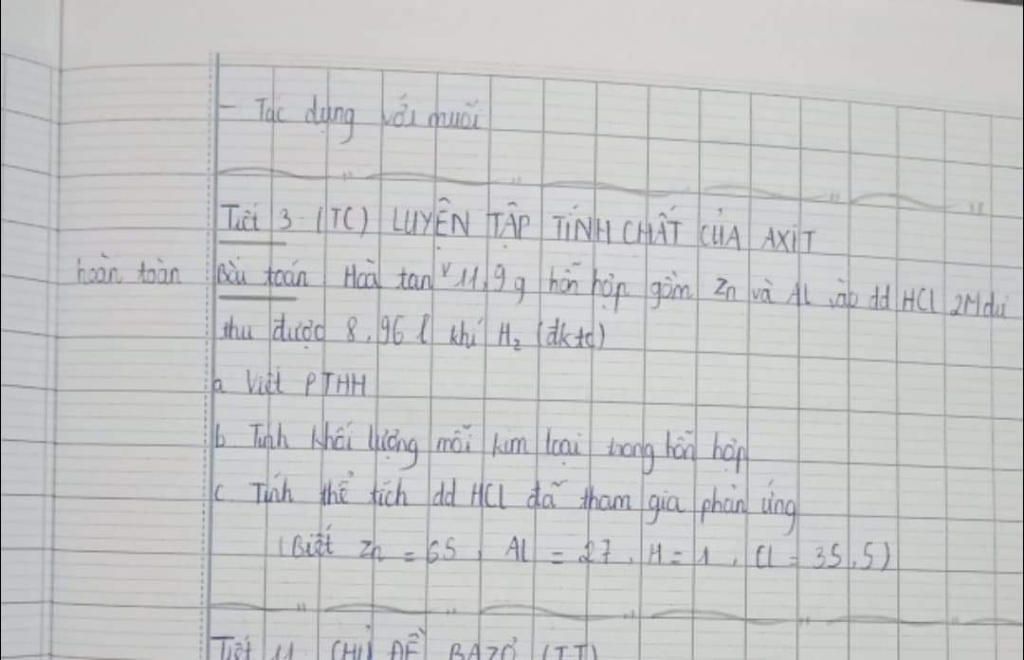 - Tác dụng với muối
Tiết 3 (TC) LUYỆN TẬP TÍNH CHẤT CỦA AXIT
hoàn toàn
Bài toán Hoà tan v 11,9 g hỗn hợp gồm Zn và Al vào dd HCl 2M dư
thu được 8,96 l khí H₂ (đktc)
a Viết PTHH
b Tính khối lượng mỗi kim loại trong hỗn hợp
c Tính thể tích dd HCl đã tham gia phản ứng
(Biết Zn = 65, Al = 27, H = 1, Cl = 35,5)
Tiết 11 CHỦ ĐỀ BAZƠ (TT)